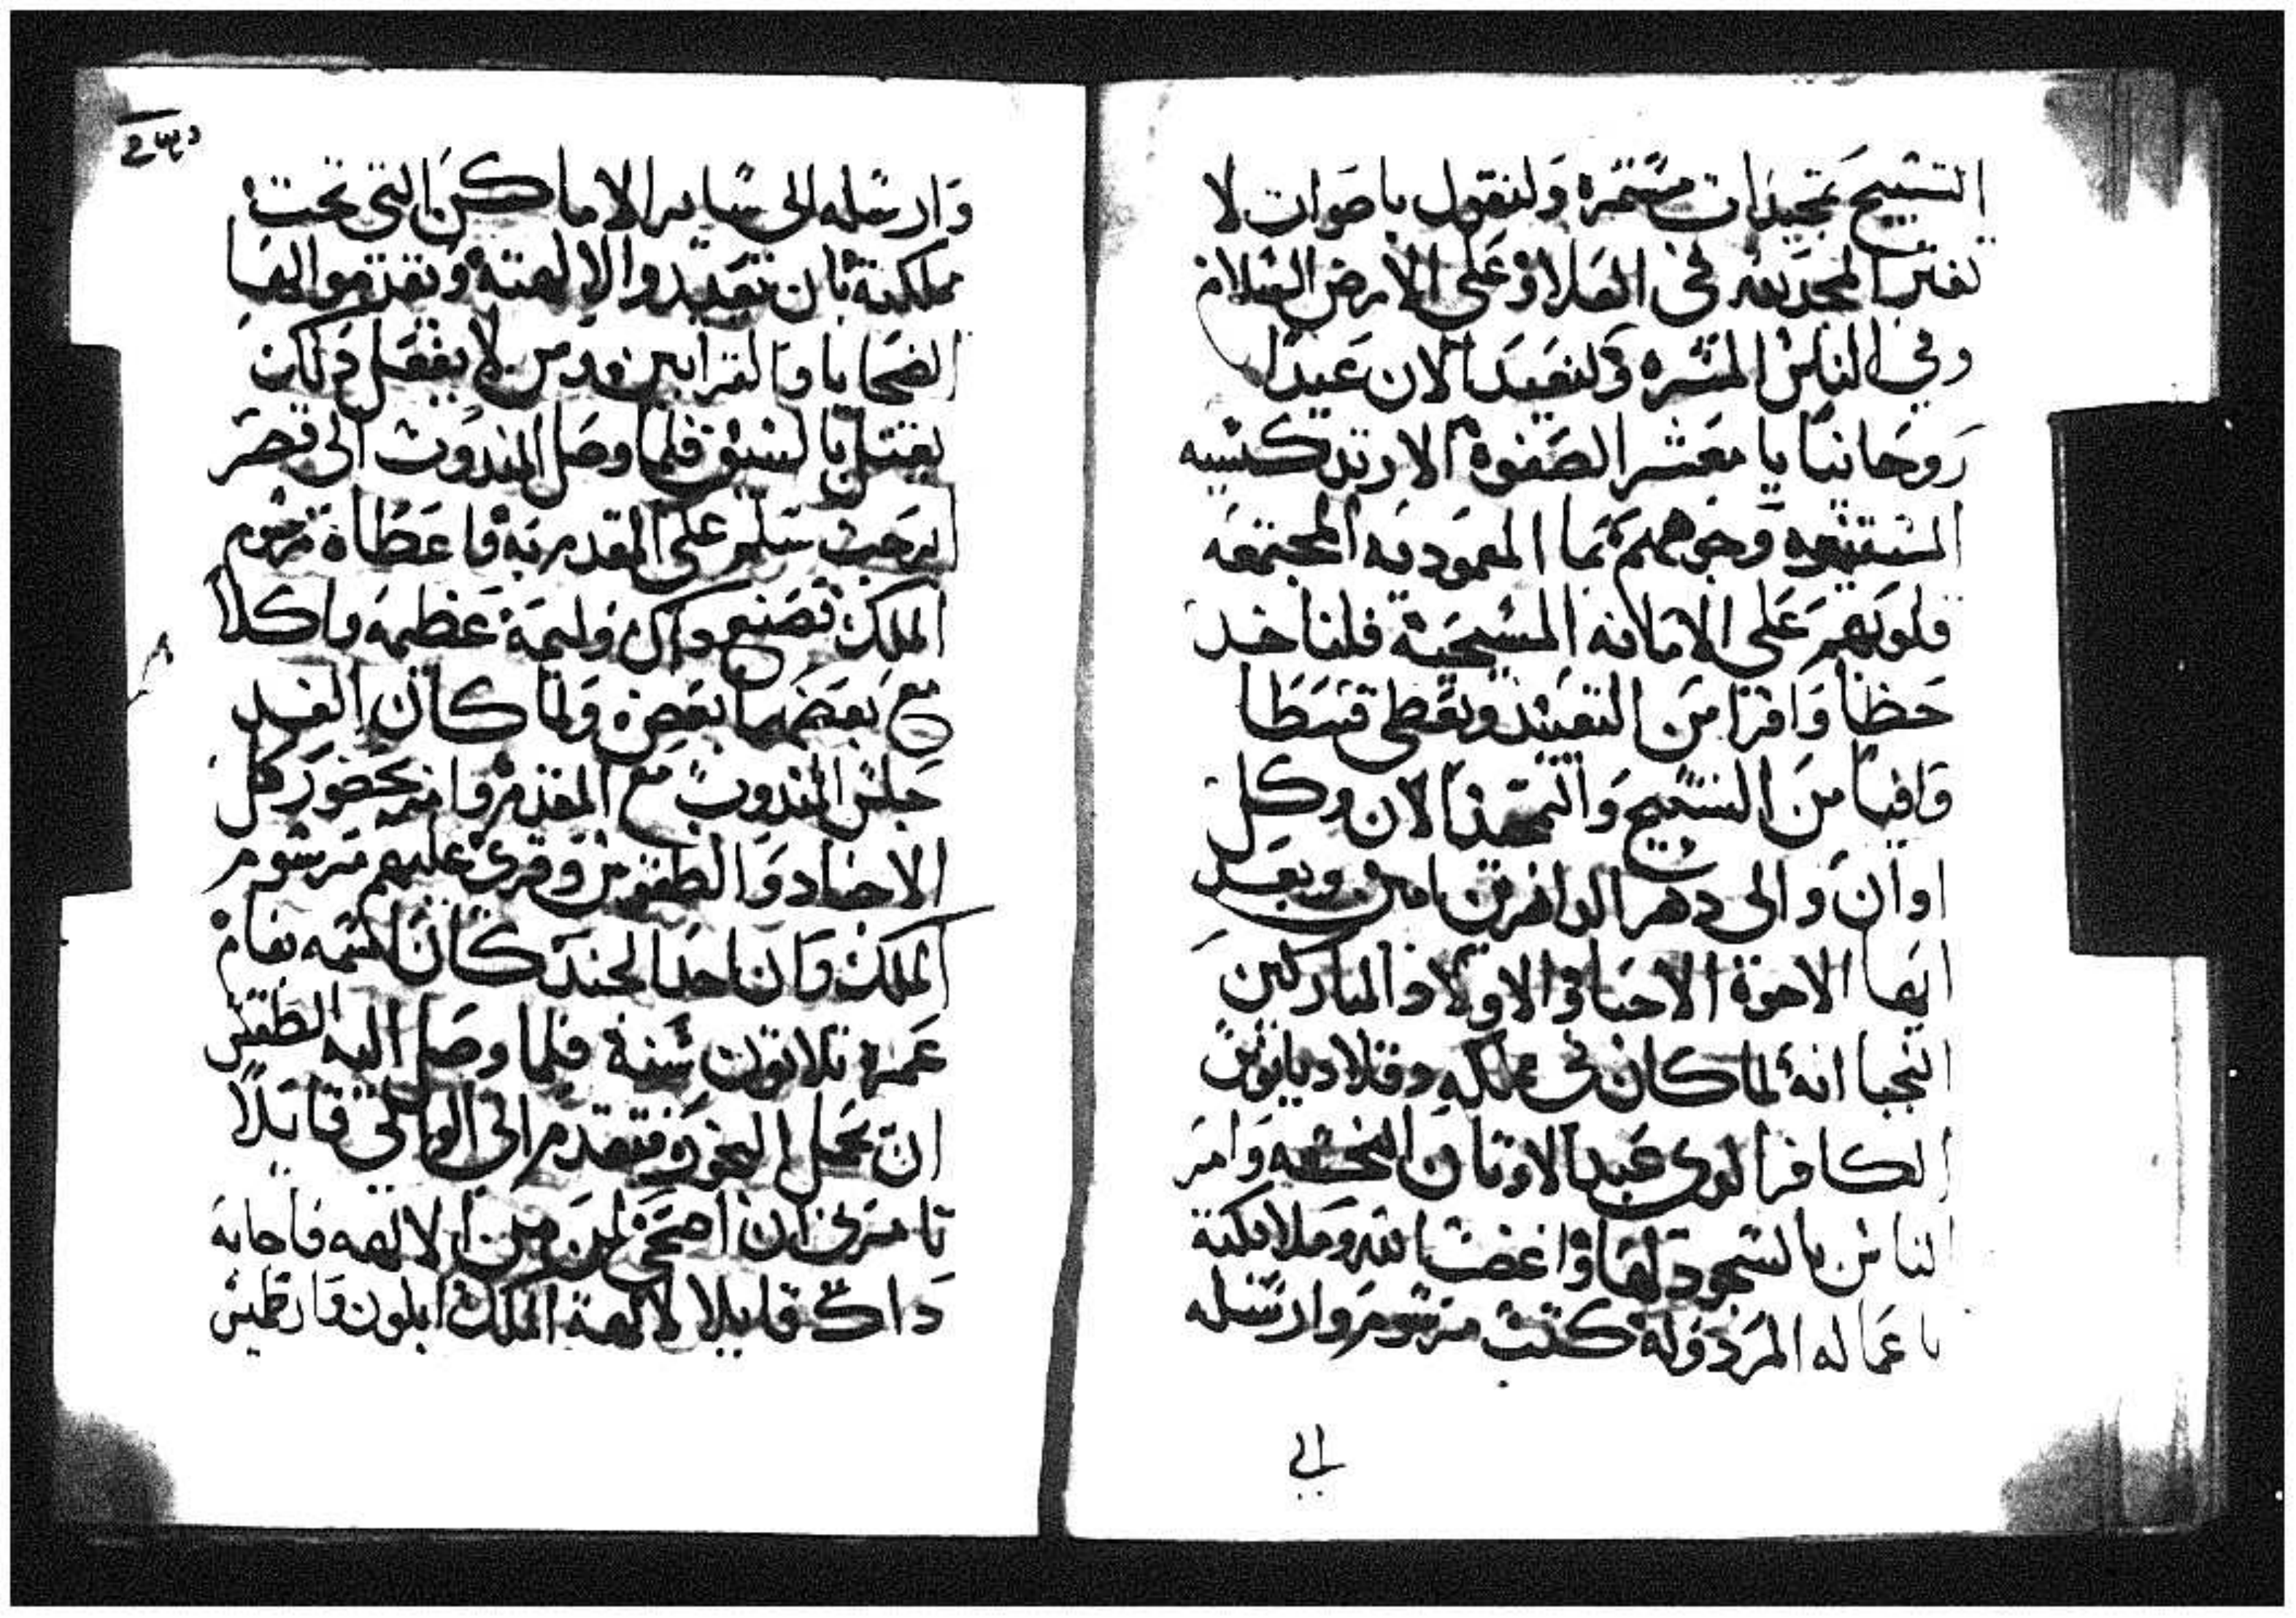 التسبيح تمجيدات مستمره ولنقول باصوات لا
تفتر المجد لله في العلا وعلى الارض السلام
وفي الناس المسره ولنعيد الان عيدا
روحانيا يا معشر الصفوة الارتدكسيه
المستنيره وجوههم بما المعموديه المجتمعه
قلوبهم على الامانه المسيحية فلناخد
حظا وافرا من التعييد ونعطى قسطا
وافيا من التسبيح والتمجيد الان وكل
اوان والى دهر الداهرين امين وبعد
ايها الاخوة الاحبا والاولاد المباركين
النجبا انه لما كان في مملكه دقلاديانوس
الكافر الدى عبد الاوتان وامر
الناس بالسجود لها واغضب الله وملايكتة
باعماله المردولة كتب مرسوم وارسله
الى
وارسله الى ساير الاماكن التي تحت
مملكته بان تعبدوا الالهتة وتقدموا اليها
الضحايا والقرابين ومن لا يفعل دلك
يقتل بالسيف فلما وصل المندوب الى قصر
البرجب سلم على المقدم بة فاعطاة مرسوم
الملك فصنع داك وليمة عظيمه واكلا
مع بعضهما بعض ولما كان الغد
جلس المندوب مع المقدم وامر بحضور كل
الاجناد والطقوس وقرى عليهم مرسوم
الملك وان احد الجند كان اسمه بفام
عمره تلاتون سنة فلما وصل اليه الطقس
ان يحمل البخور فتقدم الى الوالي قايلا
تامرني ان اضحى لمن من الالهه فاجابه
داك قايلا لالهة الملك ابلون وارطميس